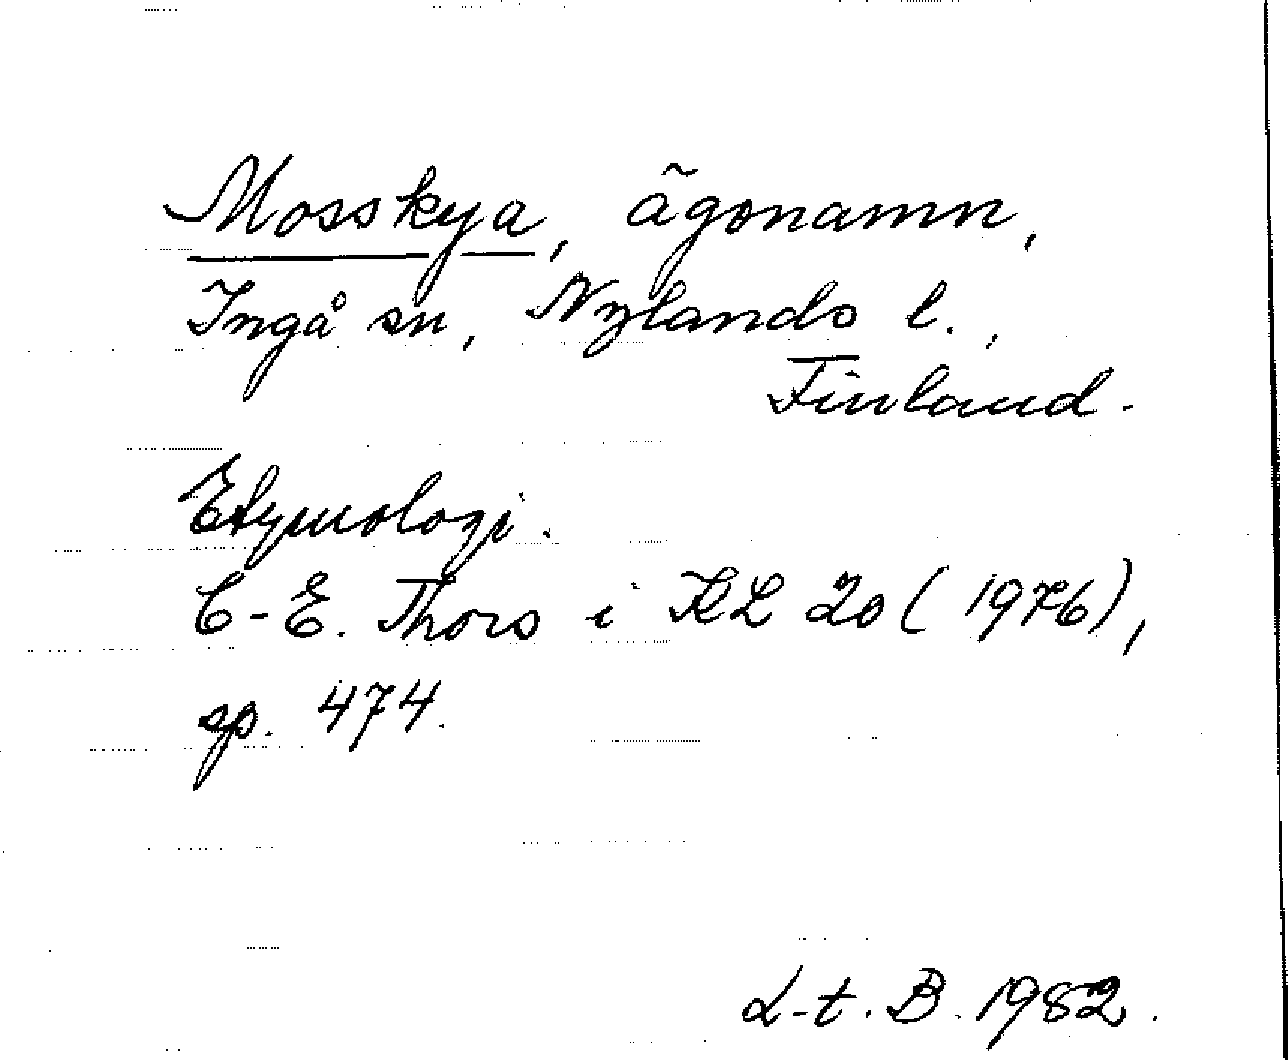 Mosskya, ägonamn,
Ingå sn, Nylands l.,
Finland.
Etymologi.
C-E. Thors i KL 20 (1976),
sp. 474.
L-t. B. 1982.